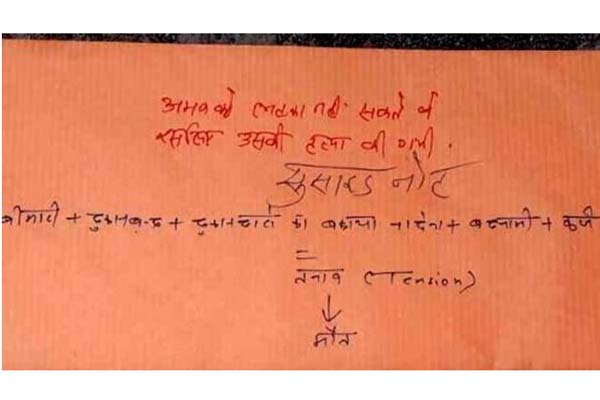 अमन को लटका नहीं सकते थे
इसलिए उसकी हत्या की गयी.
सुसाइड नोट
बीमारी + दुकान बन्द + दुकानदारों का बकाया ना देना + बदनामी + कर्ज
=
तनाव (Tension)
↓
मौत